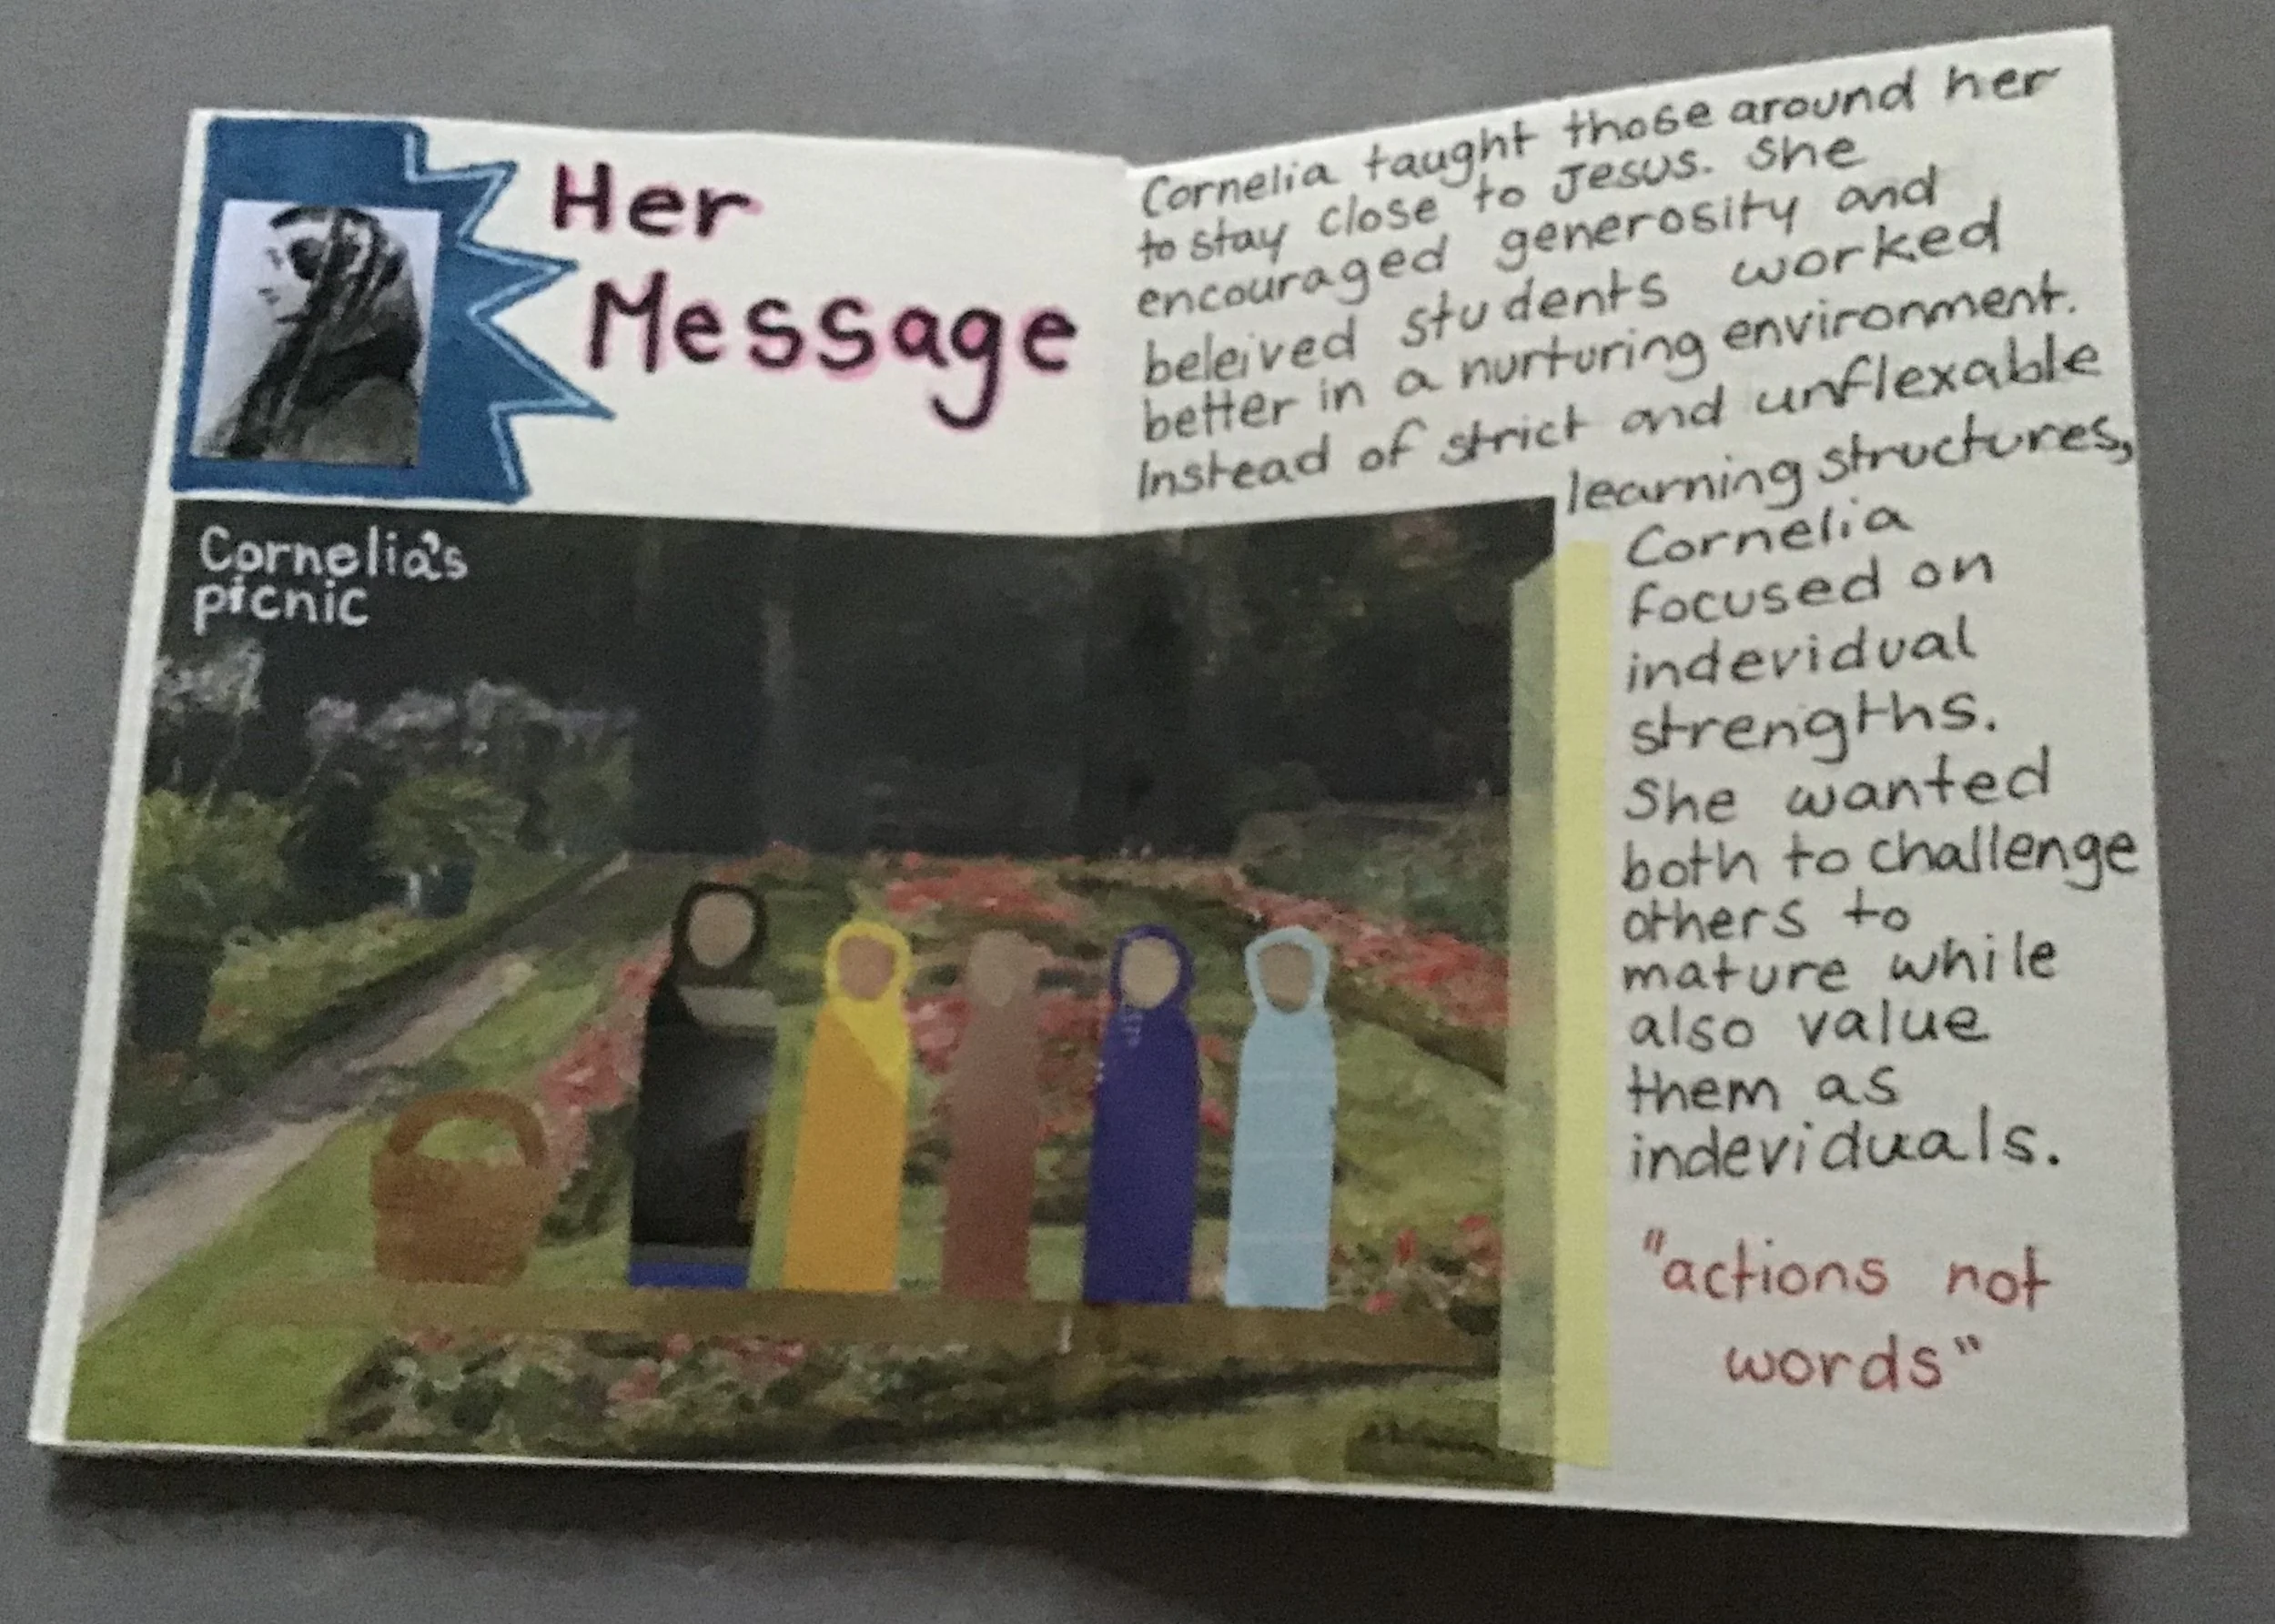 Her
Message
Cornelia taught those around her
to stay close to Jesus. She
encouraged generosity and
beleived students worked
better in a nurturing environment.
Instead of strict and unflexable
learning structures,
Cornelia
focused on
indevidual
strengths.
She wanted
both to challenge
others to
mature while
also value
them as
indeviduals.
"actions not
words"
Cornelia's
picnic